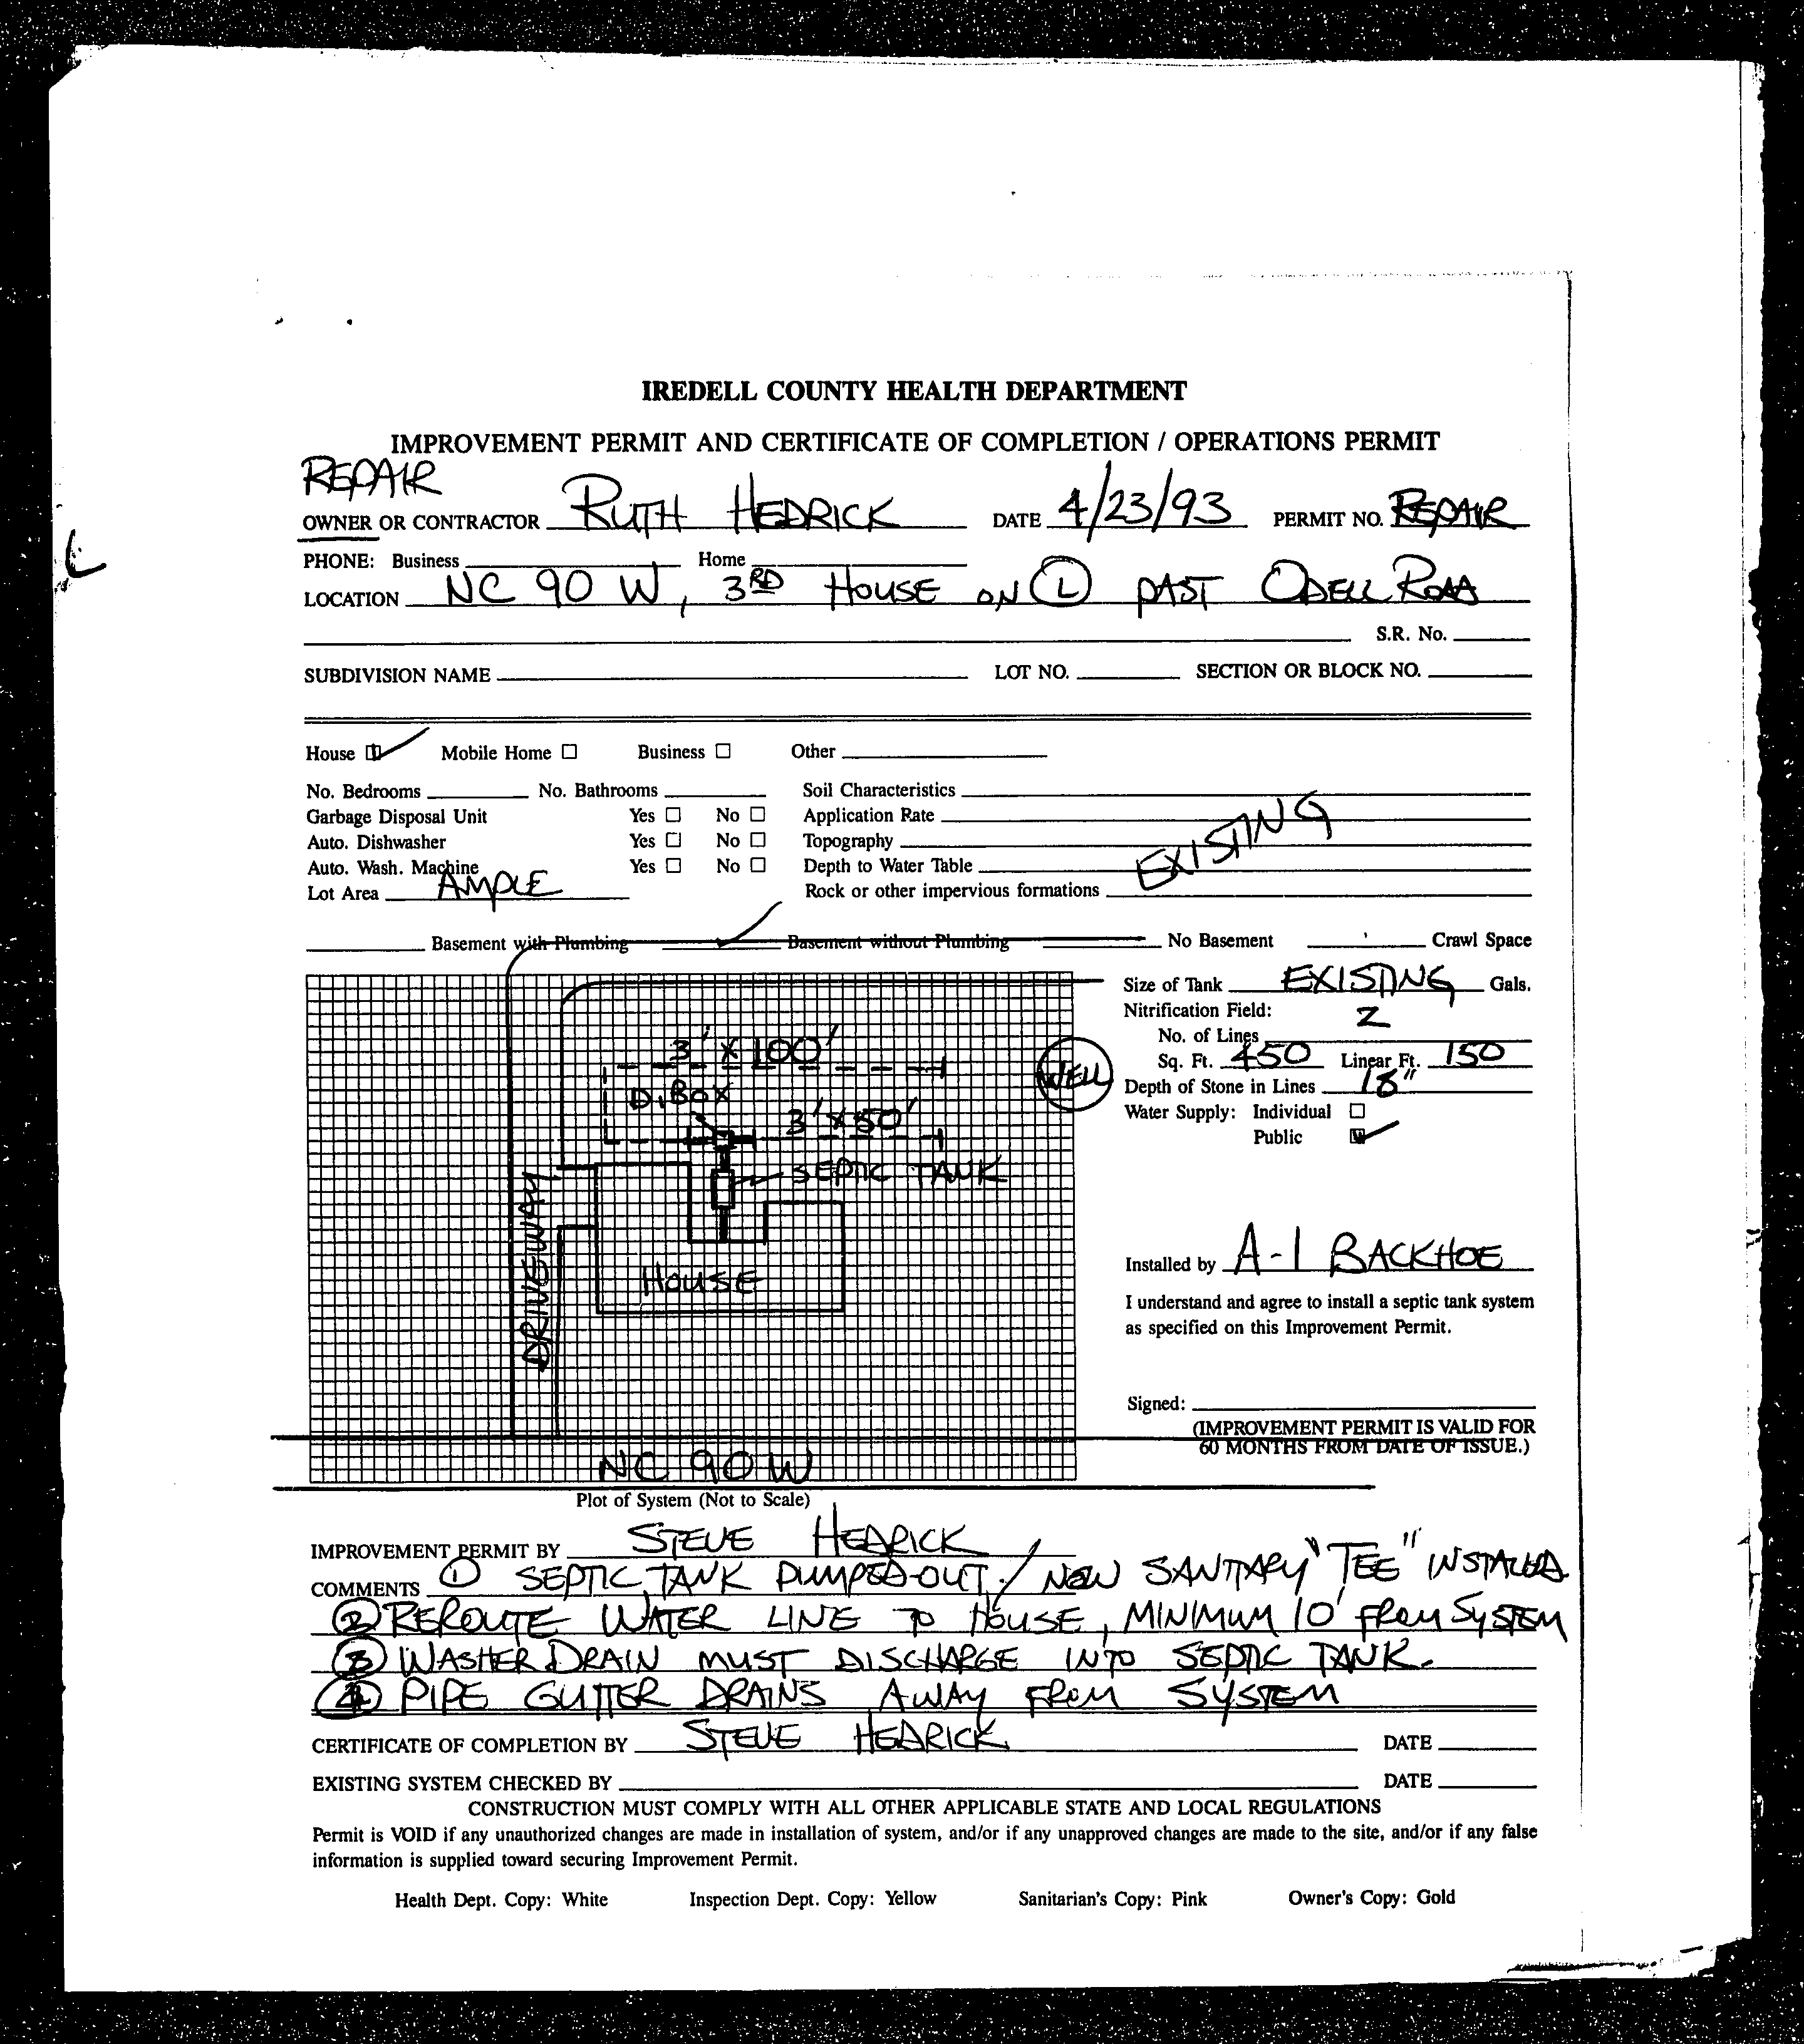 IREDELL COUNTY HEALTH DEPARTMENT
IMPROVEMENT PERMIT AND CERTIFICATE OF COMPLETION / OPERATIONS PERMIT
REPAIR
OWNER OR CONTRACTOR RUTH HEDRICK DATE 4/23/93 PERMIT NO. REPAIR
PHONE: Business Home
LOCATION NC 90 W, 3RD HOUSE ON L PAST ODELL ROAD
S.R. No.
SUBDIVISION NAME LOT NO. SECTION OR BLOCK NO.
House Mobile Home Business Other
No. Bedrooms No. Bathrooms Soil Characteristics
Garbage Disposal Unit Yes No Application Rate
Auto. Dishwasher Yes No Topography
Auto. Wash. Machine Yes No Depth to Water Table EXISTING
Lot Area AMPLE Rock or other impervious formations
Basement with Plumbing Basement without Plumbing No Basement Crawl Space
Size of Tank EXISTING Gals.
Nitrification Field:
No. of Lines 2
Sq. Ft. 450 Linear Ft. 150
Depth of Stone in Lines 18"
Water Supply: Individual
Public
3' X 100'
WELL
D.BOX
3' X 50'
SEPTIC TANK
DRIVEWAY
HOUSE
NC 90 W
Installed by A-1 BACKHOE
I understand and agree to install a septic tank system
as specified on this Improvement Permit.
Signed:
(IMPROVEMENT PERMIT IS VALID FOR
60 MONTHS FROM DATE OF ISSUE.)
Plot of System (Not to Scale)
IMPROVEMENT PERMIT BY STEVE HEDRICK
COMMENTS 1 SEPTIC TANK PUMPED OUT / NEW SANITARY "TEE" INSTALLED
2 REROUTE WATER LINE TO HOUSE, MINIMUM 10' FROM SYSTEM
3 WASHER DRAIN MUST DISCHARGE INTO SEPTIC TANK.
4 PIPE GUTTER DRAINS AWAY FROM SYSTEM
CERTIFICATE OF COMPLETION BY STEVE HEDRICK DATE
EXISTING SYSTEM CHECKED BY DATE
CONSTRUCTION MUST COMPLY WITH ALL OTHER APPLICABLE STATE AND LOCAL REGULATIONS
Permit is VOID if any unauthorized changes are made in installation of system, and/or if any unapproved changes are made to the site, and/or if any false
information is supplied toward securing Improvement Permit.
Health Dept. Copy: White Inspection Dept. Copy: Yellow Sanitarian's Copy: Pink Owner's Copy: Gold